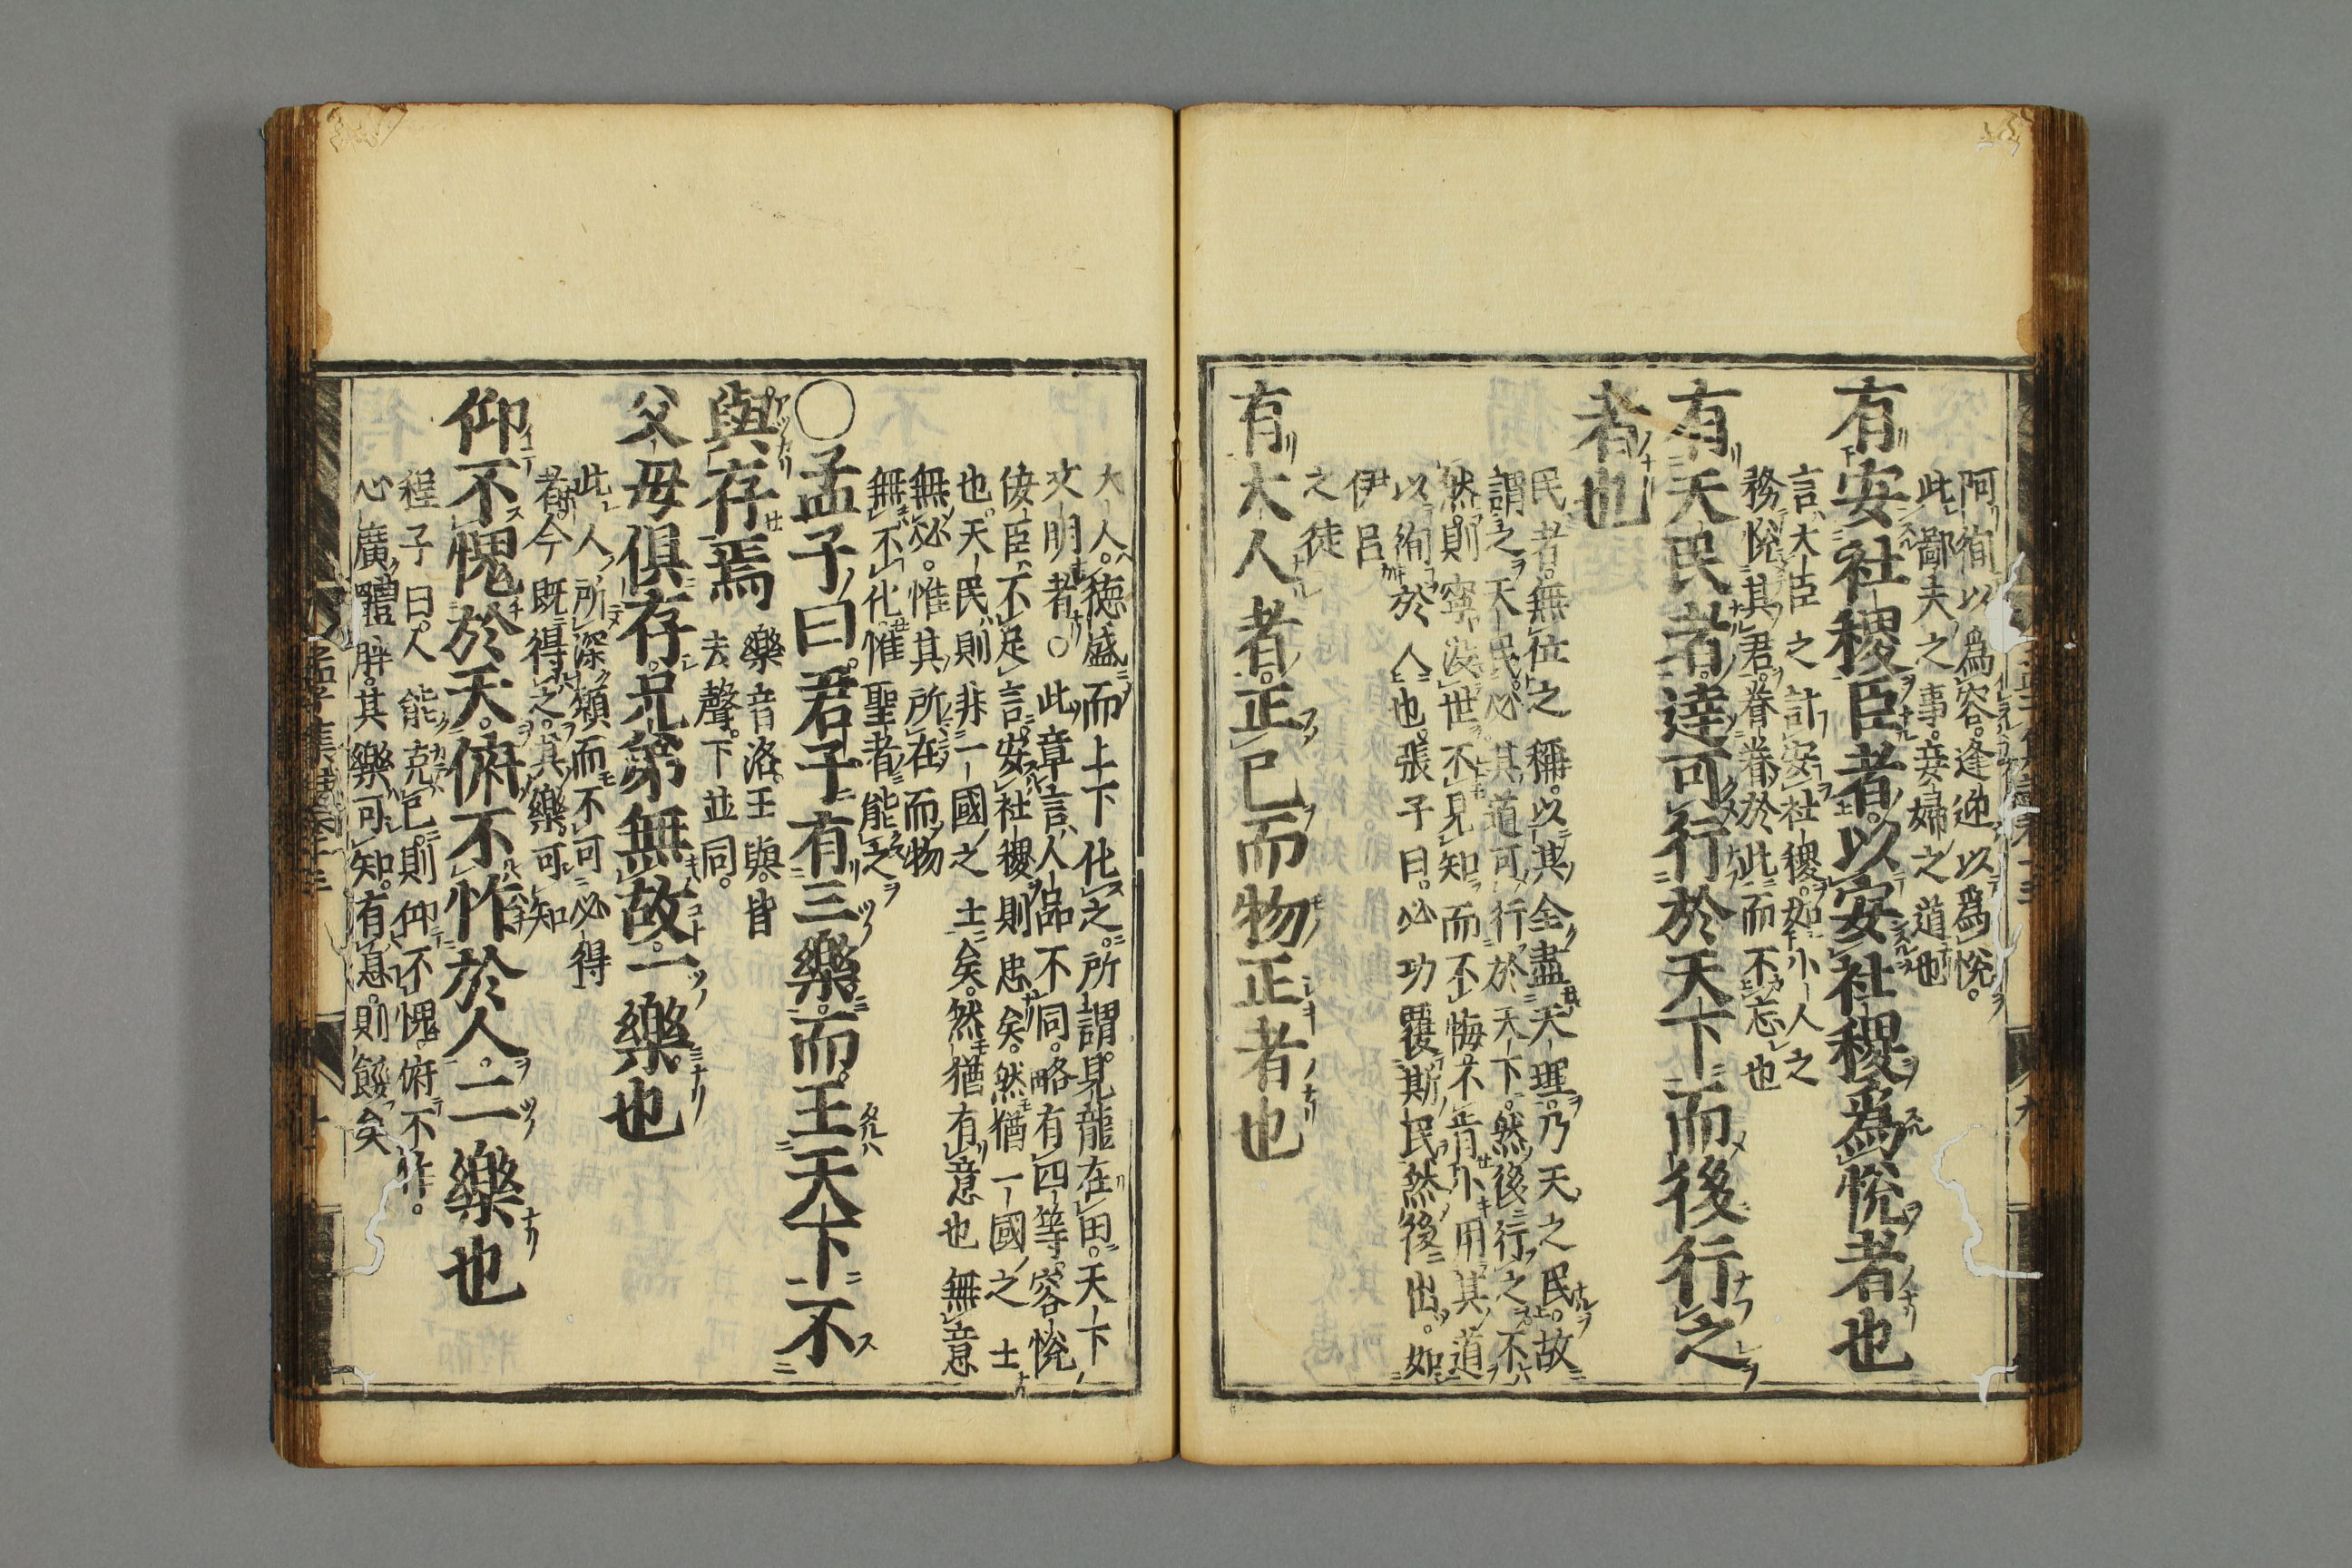 阿徇以爲容。逢迎以爲悅。
此鄙夫之事。妾婦之道也
有安社稷臣者。以安社稷爲悅者也
言大臣之計安社稷。如小人之
務悅其君。眷眷於此而不忘也
有天民者。達可行於天下而後行之
者也
民者。無位之稱。以其全盡天理。乃天之民。故
謂之天民。必其道可行於天下。然後行之。不
然。則寧沒世不見知而不悔。不肯小用其道
以徇於人也。張子曰。必功覆斯民然後出。如
伊呂
之徒
有大人者。正己而物正者也
大人。德盛而上下化之。所謂見龍在田。天下
文明者。○此章言人品不同。略有四等。容悅
佞臣不足言。安社稷則忠矣。然猶一國之士
也。天民則非一國之士矣。然猶有意也無意
無必。惟其所在而物
無不化。惟聖者能之
○孟子曰。君子有三樂。而王天下不
與存焉
樂音洛。王與。皆
去聲。下並同。
父母俱存。兄弟無故。一樂也
此人所深願而不可必得
者。今既得之。其樂可知
仰不愧於天。俯不怍於人。二樂也
程子曰。人能克己。則仰不愧。俯不怍。
心廣體胖。其樂可知。有息。則餒矣